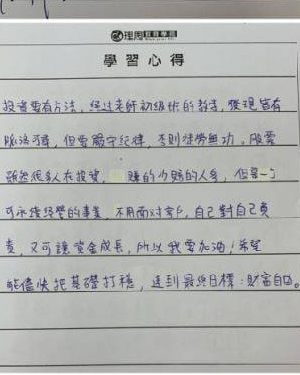 理周教育學苑
學習心得
投資要有方法,經过老師初級班的教学,發現皆有
脈洛可尋,但要嚴守紀律,否則徒勞無功。股票
雖然很多人在投資,賺的少賠的人多,但是一个
可永續經營的事業,不用面对客戶,自己對自己負
責,又可讓資金成長,所以我要加油!希望
能儘快把基礎打穩,達到最終目標:財富自由。